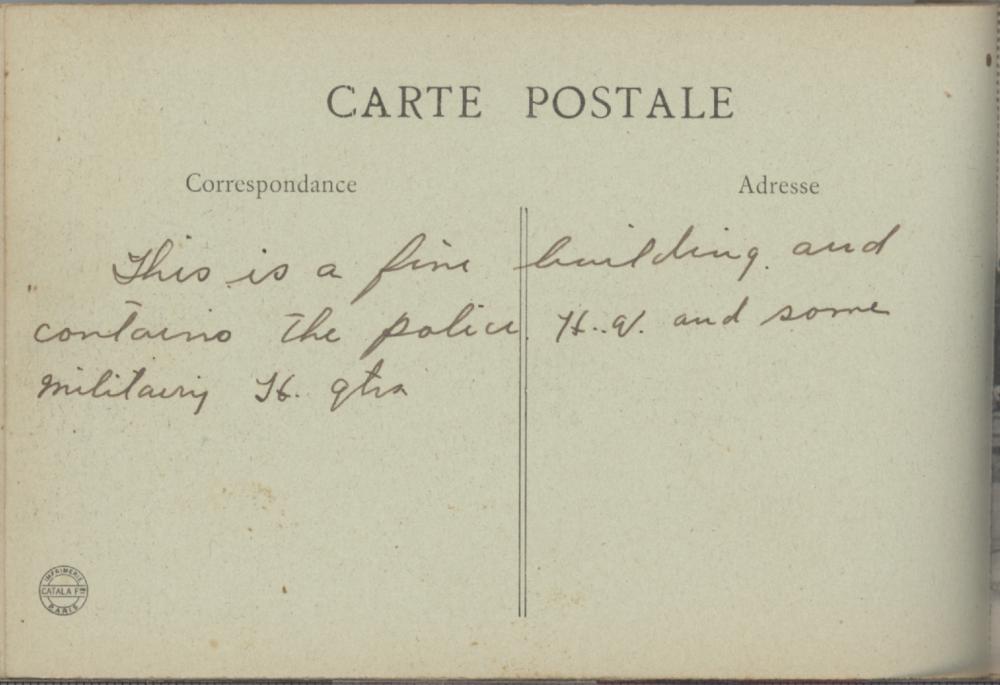 CARTE POSTALE
Correspondance
Adresse
This is a fine building and
contains the police H.Q. and some
military H. qtrs
IMPRIMERIE
CATALA Fres
PARIS